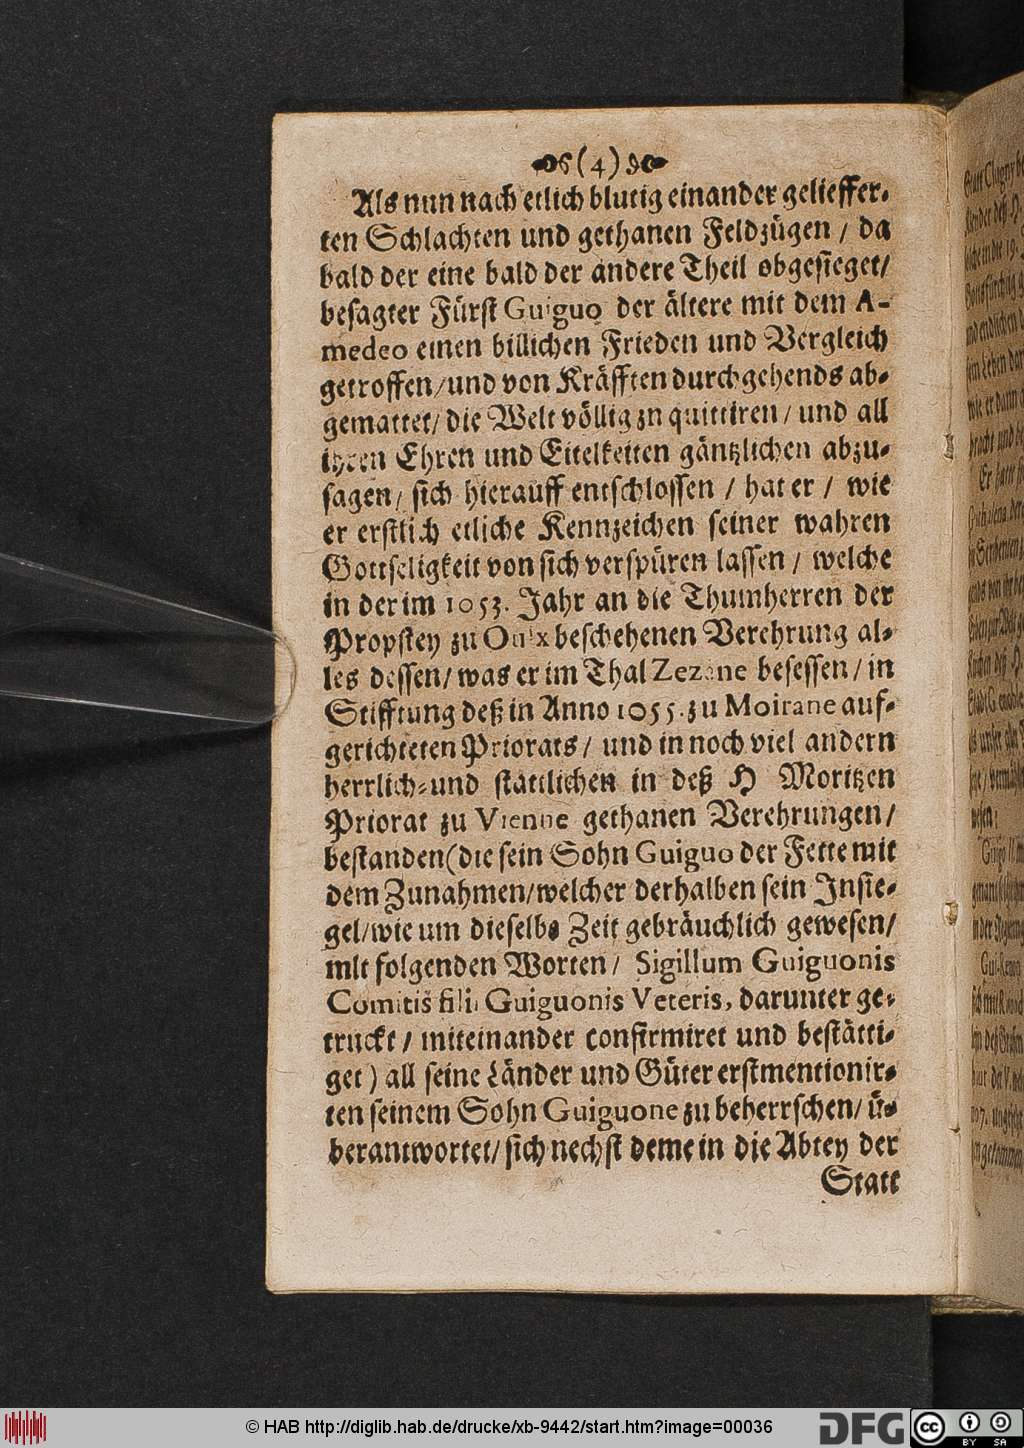 (4)
Als nun nach etlich blutig einander gelieffer-
ten Schlachten und gethanen Feldzügen / da
bald der eine bald der andere Theil obgesieget/
besagter Fürst Guiguo der ältere mit dem A-
medeo einen billichen Frieden und Vergleich
getroffen/und von Kräfften durchgehends ab-
gemattet/ die Welt völlig zn quittiren / und all
ihren Ehren und Eitelkeiten gäntzlichen abzu-
sagen/ sich hierauff entschlossen / hat er / wie
er erstlich etliche Kennzeichen seiner wahren
Gottseligkeit von sich verspüren lassen / welche
in der im 1053. Jahr an die Thumherren der
Propstey zu Oulx beschehenen Verehrung al-
les dessen/ was er im Thal Zezane besessen / in
Stifftung deß in Anno 1055. zu Moirane auf-
gerichteten Priorats / und in noch viel andern
herrlich- und stattlichen in deß H Moritzen
Priorat zu Vienne gethanen Verehrungen/
bestanden (die sein Sohn Guiguo der Fette mit
dem Zunahmen/welcher derhalben sein Insie-
gel/wie um dieselbe Zeit gebräuchlich gewesen/
mit folgenden Worten / Sigillum Guiguonis
Comitis filii Guiguonis Veteris, darunter ge-
truckt / miteinander confirmiret und bestätti-
get) all seine Länder und Güter erstmentionir-
ten seinem Sohn Guiguone zu beherrschen / ü-
berantwortet/ sich nechst deme in die Abtey der
Statt
© HAB http://diglib.hab.de/drucke/xb-9442/start.htm?image=00036
DFG
cc
BY SA